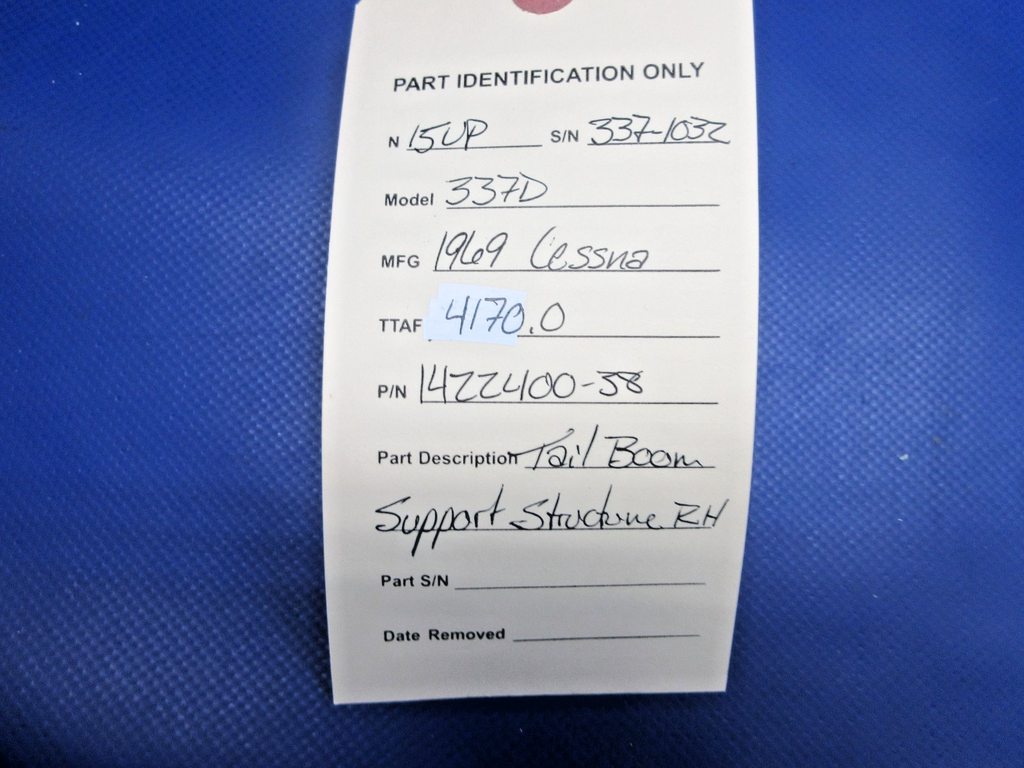 PART IDENTIFICATION ONLY
N 15UP S/N 337-1032
Model 337D
MFG 1969 Cessna
TTAF 4170.0
P/N 1422400-38
Part Description Tail Boom
Support Structure RH
Part S/N
Date Removed